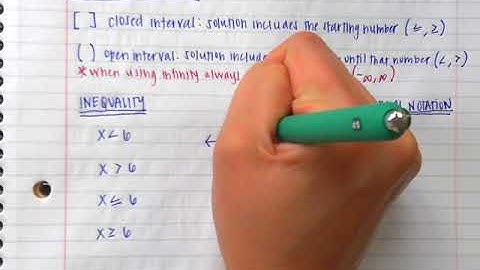 [ ] closed interval: solution includes the starting number (≤, ≥)
( ) open interval: solution include until that number (<, >)
* when using infinity always (-∞, ∞)
INEQUALITY NOTATION
x < 6
x > 6
x ≤ 6
x ≥ 6